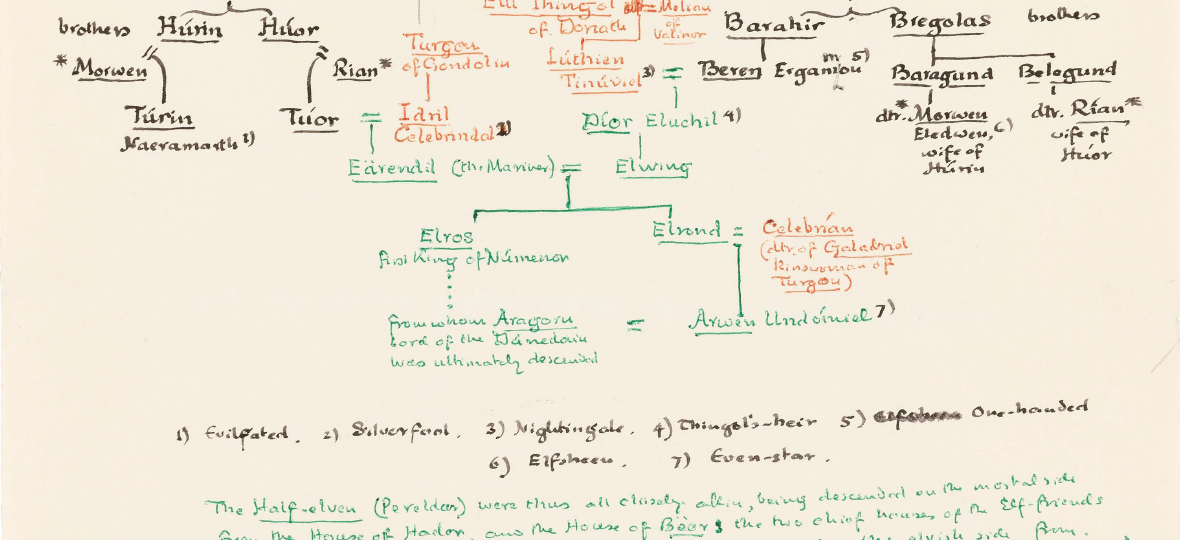 Elu Thingol = Melian
of Doriath of
Valinor
brothers Húrin Huor
Barahir Bregolas brothers
* Morwen Rian*
Turgon
of Gondolin
Lúthien
Tinúviel 3) = Beren Ergamion m 5)
Baragund Belegund
Túrin
Naeramarth 1)
Tuor = Idril
Celebrindal 2)
Dior Eluchil 4)
dtr. *Morwen
Eledwen, 6)
wife of
Húrin
dtr. Rían*
wife of
Huor
Eärendil (the Mariner) = Elwing
Elros
first King of Númenor
Elrond = Celebrían
(dtr. of Galadriel
Kinswoman of
Turgon)
from whom Aragorn
Lord of the Dúnedain
was ultimately descended
= Arwen Undómiel 7)
1) Evilfated. 2) Silverfoot. 3) Nightingale. 4) Thingol's-heir 5) One-handed
6) Elfsheen. 7) Even-star.
The Half-elven (Pereldar) were thus all closely akin, being descended on the mortal side
from the House of Hador, and the House of Bëor; the two chief houses of the Elf-friends
the elvish side from